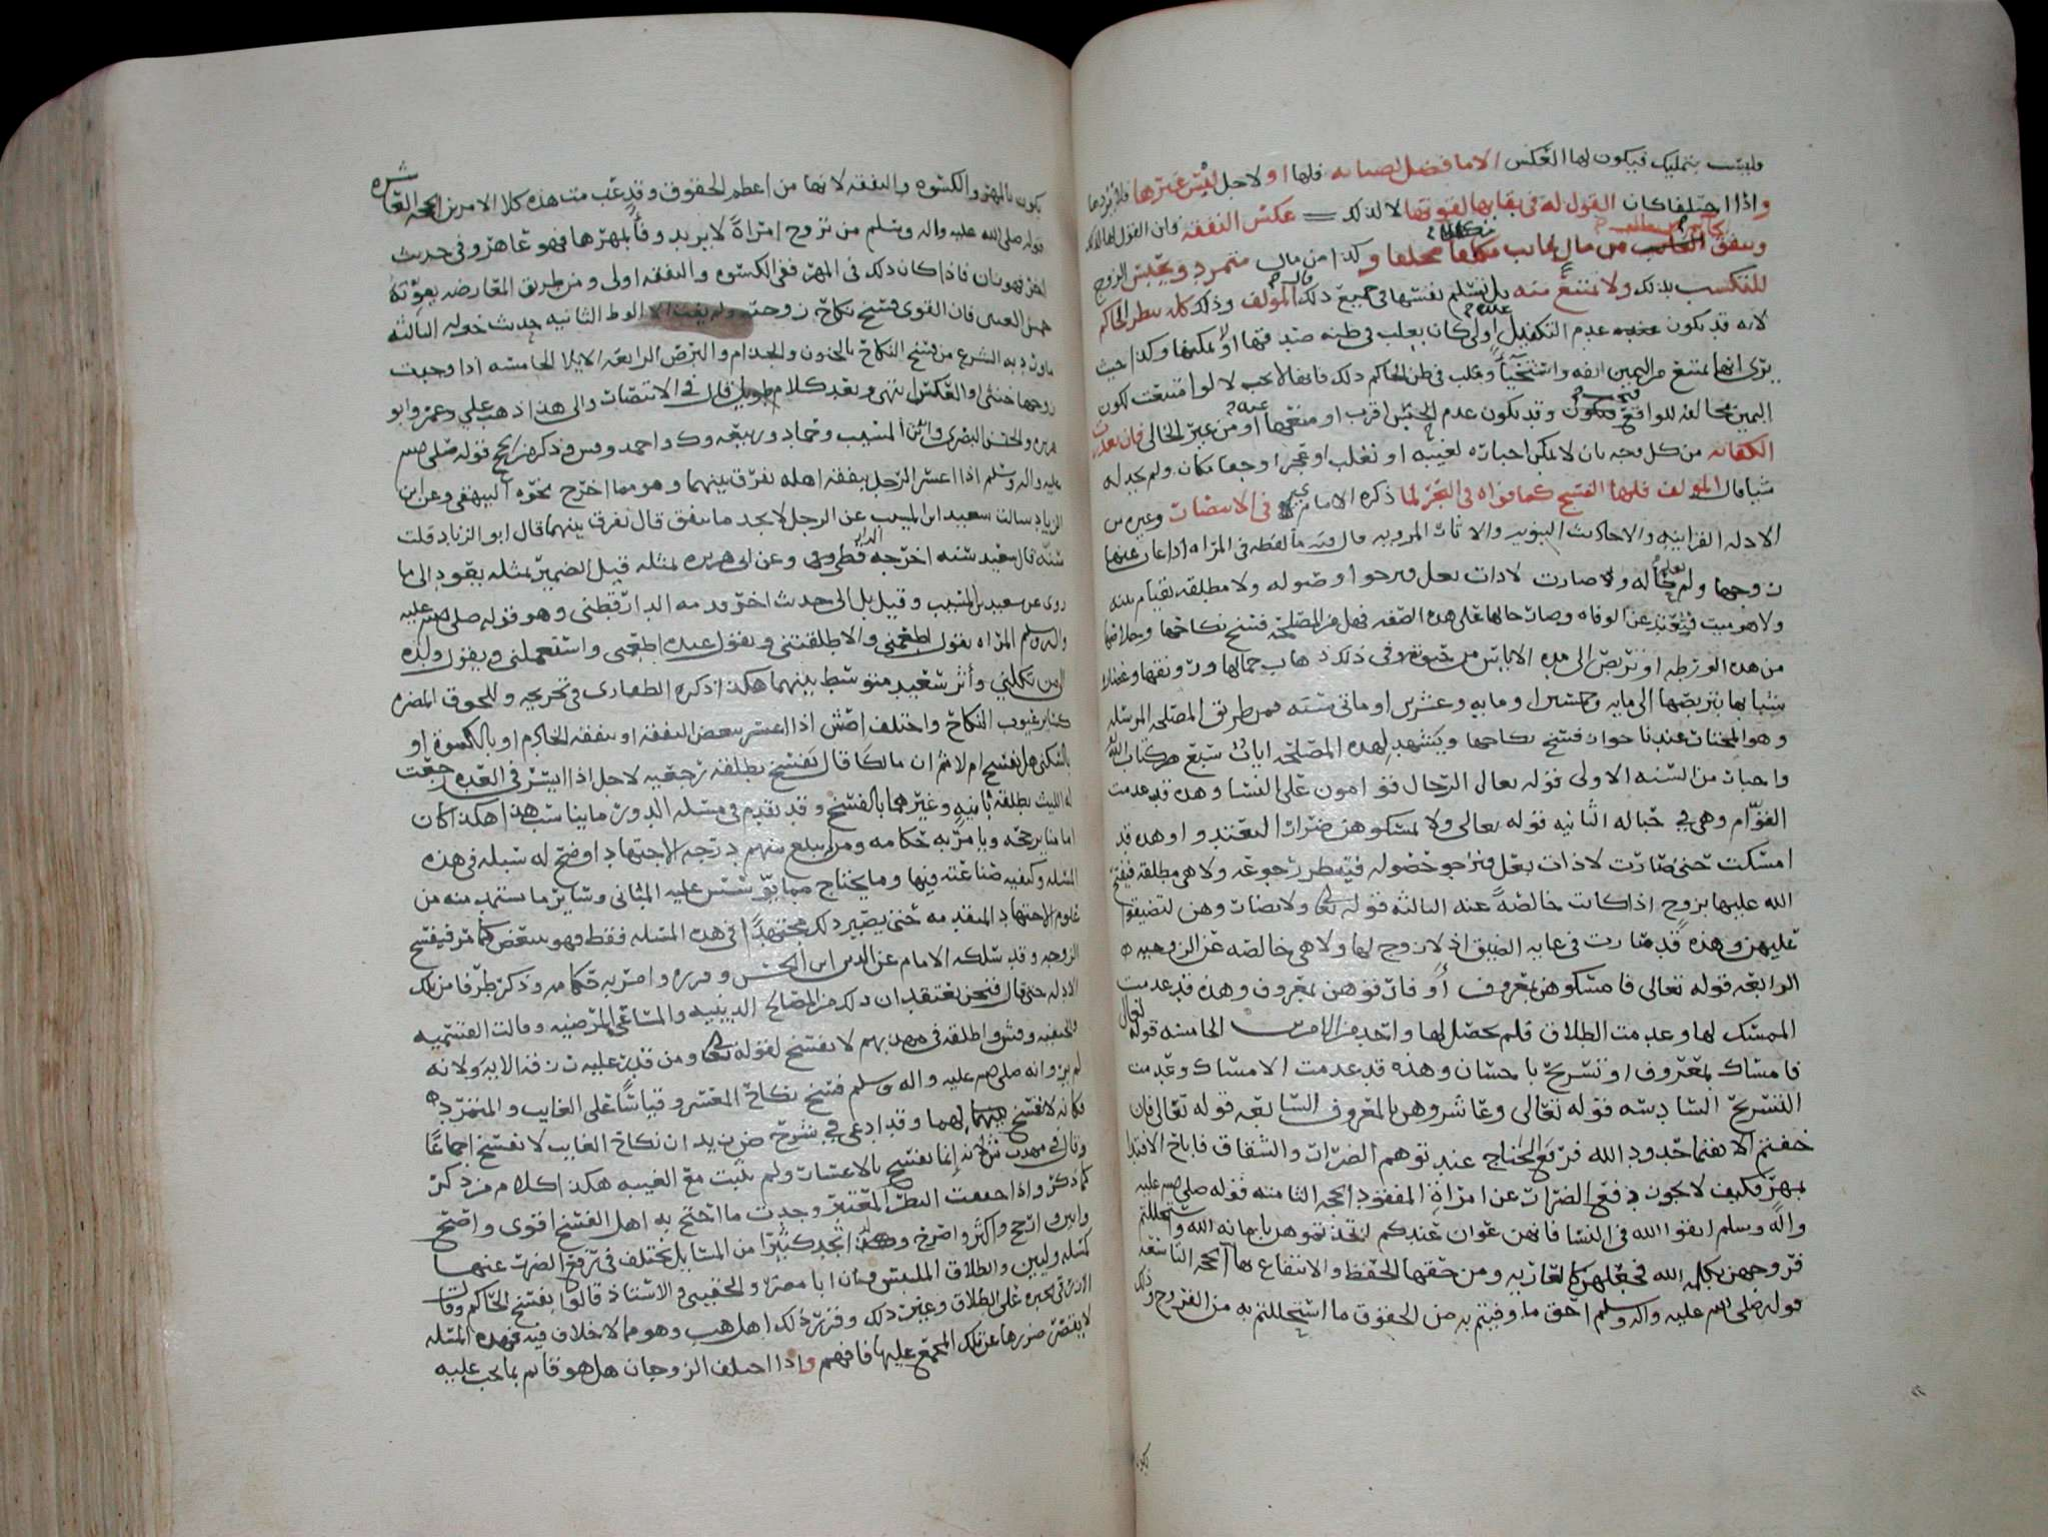 وليست بتمليك فيكون لها العكس الا ما فضل لصيانه فلها او لاجل لبس غيرها
واذا اختلفا كان القول له في بقائها لقوتها لا لذلك عكس النفقه فان القول لها
وينفق الحاكم من مال الغايب مكفلا محلفا وكذا من مال متمرد ويحبس الزوج
للتكسب بذلك ولا تمتنع منه بل تسلم نفسها في جميع ذلك قاله المؤلف وذلك كله بنظر الحاكم
لانه قد يكون عنده عدم التكفيل اولى كان يغلب في ظنه صدقها او لا يمكنها وكذا حيث
يرى انها تمتنع من اليمين انفه واستحياء وغلب في ظن الحاكم ذلك فانها لا تجب لا لو امتنعت لكون
اليمين مخالفه للواقع وقد يكون عدم الحبس اقرب او منعها او من غير الحالي فان تعذرت
الكفايه من كل وجه بان لا يمكن اجباره لغيبه او تغلب او عجز او جهل مكان ولم يجد له
شيا قال المؤلف فلها الفسخ كما قواه في البحر لما ذكره الامام في الانتصار وغيره من
الادله القرانيه والاحاديث النبويه والاثار المرويه قال فيه ما لفظه في المراه اذا غاب عنها
زوجها ولم يعلم حاله ولا صارت لا ذات بعل فيرجو وصوله ولا مطلقه
ولا هو ميت فتعتد عن الوفاه وصار حالها على هذه الصفه فهل من المصلحه فسخ نكاحها وخلاصها
من هذه الورطه او تربص الى مده الاياس من حيوته وفي ذلك ذهاب جمالها ورونقها
شبابها بتربصها الى مايه وعشرين او مايه وعشرين او مائتي سنه فمن طريق المصلحه المرسله
وهو المختار عندنا جواز فسخ نكاحها ويشهد لهذه المصلحه ايات سبع من كتاب الله
واخبار من السنه الاولى قوله تعالى الرجال قوامون على النسا وهذه قد عدمت
القوام وهي في حباله الثانيه قوله تعالى ولا تمسكوهن ضرارا لتعتدوا وهذه قد
امسكت حتى صارت لا ذات بعل فترجو حضوله فتنتظر رجوعه ولا هي مطلقه فيفتح
الله عليها بزوج اذا كانت خالصه عنه الثالثه قوله تعالى ولا تضاروهن لتضيقوا
عليهن وهذه قد صارت في غايه الضيق اذ لا زوج لها ولا هي خالصه عن الزوجيه
الرابعه قوله تعالى فامسكوهن بمعروف او فارقوهن بمعروف وهذه قد عدمت
الممسك لها وعدمت الطلاق فلم يحصل لها واحد من الامرين الخامسه قوله تعالى
فامساك بمعروف او تسريح باحسان وهذه قد عدمت الامساك وعدمت
التسريح السادسه قوله تعالى وعاشروهن بالمعروف السابعه قوله تعالى فان
خفتم الا يقيما حدود الله فرفع الجناح عند توهم الضرار والشقاق فاباح الافتدا
بمهر فكيف لا يجوز دفع الضرار عن امراة المفقود الحجه الثامنه قوله صلى الله عليه
واله وسلم اتقوا الله في النسا فانهن عوان عندكم اتخذتموهن بامانه الله واستحللتم
فروجهن بكلمه الله فجعلهن كالعاريه ومن حقها الحفظ والانتفاع بها الحجه التاسعه
قوله صلى الله عليه واله وسلم احق ما وفيتم به من الحقوق ما استحللتم به من الفروج وذلك
يكون بالمهر والكسوه والنفقه لانها من اعظم الحقوق وقد عدمت هذه كلا الامرين الحجه العاشره
قوله صلى الله عليه واله وسلم من تزوج امراة لا يريد وفا بمهرها فهو عاهر وفي حديث
اخر فهو زان فاذا كان ذلك في المهر ففي الكسوه والنفقه اولى ومن طريق المعارضه بموته
فسخ نكاح زوجته الوطء الثانيه حدث خوله الثالثه
ما ورد به الشرع من فسخ النكاح بالجنون والجذام والبرص الرابعه الايلا الخامسه اذا وجدت
زوجها خنثى او العكس انتهى وبعد كلام طويل قال في الانتصار والى هذا ذهب علي وعمر وابو
هريره والحسن البصري وابن المسيب وحماد وربيعه وك واحمد وذكر حجج قوله صلى الله
عليه واله وسلم اذا اعسر الرجل بنفقه اهله يفرق بينهما وهو مما اخرج نحوه البيهقي وعن ابي
الزناد سالت سعيد ابن المسيب عن الرجل لا يجد ما ينفق قال يفرق بينهما قال ابو الزناد قلت
سنه قال سعيد سنه اخرجه الدارقطني وعن ابي هريره بمثله قيل الضمير بمثله يعود الى ما
روي عن سعيد بن المسيب وقيل بل الى حديث اخر قدمه الدارقطني وهو قوله صلى الله عليه
واله وسلم المراه تقول اطعمني والا طلقتني ويقول عبدك اطعمني واستعملني ويقول ولدك
الى من تكلني واثر سعيد متوسط بينهما هكذا ذكره الظفاري في تخريجه
عيوب النكاح واختلف اصش اذا اعسر ببعض النفقه او بنفقه الخادم او بالكسوة او
بالسكنى هل تفسخ ام لا ثم ان مالكا قال يفسخ بطلقه رجعيه لاجل اذا ايسر في العده رجعت
له الليث بطلقه باينه وغيرهما بالفسخ وقد تقدم في مسله الدور ما يناسب هذا هكذا كان
امامنا يرجحه ويامر به حكامه ومن لم يبلغ منهم درجه الاجتهاد اوضح له سبله في هذه
المسله وكيفيه صناعته فيها وما يحتاج مما يؤسس عليه المباني وساير ما يستمد منه من
علوم الاجتهاد المتقدمه حتى يصير ذلك مجتهدا في هذه المسله فقط فهو يتبعض كما مر فيفسخ
الزوجه وقد سلكه الامام عز الدين ابن الحسن وقرره وامر به حكامه وذكر طرفا من تلك
الادله حتى قال فنحن نعتقد ان ذلك من المصالح الدينيه والمساعي المرضيه وقالت القسميه
والحنفيه وقش واطلقه في مهذبهم لا يفسخ لقوله تعالى ومن قدر عليه رزقه الايه ولانه
لم يرو انه صلى الله عليه واله وسلم فسخ نكاح المعسر وقياسا على الغايب والمتمرد
فكما انه لا يفسخ لهما وقد ادعي في شرح ض زيد ان نكاح الغايب لا يفسخ اجماعا
وقال في مهذب ش لانه انما يفسخ بالاعسار ولم يثبت مع الغيبه هكذا كلام من ذكر
كما ذكر واذا حققت النظر المعتبر وجدت ما احتج به اهل الفسخ اقوى واصح
وابين وارجح واكثر واصرح تجد كثيرا من المسايل يختلف في ترفع الضرر عنها
كمسله وليين والطلاق الملتبس فان ابا مضر والحقيني والاستاذ قالوا يفسخ الحاكم وقال
يجبره على الطلاق وغير ذلك وقرر ذلك اهل المذهب وهو مما لا خلاف فيه فهذه المسله
لا يقصر ضررها عن تلك المجمع عليها فافهم واذا اختلف الزوجان هل هو قائم بما يجب عليه